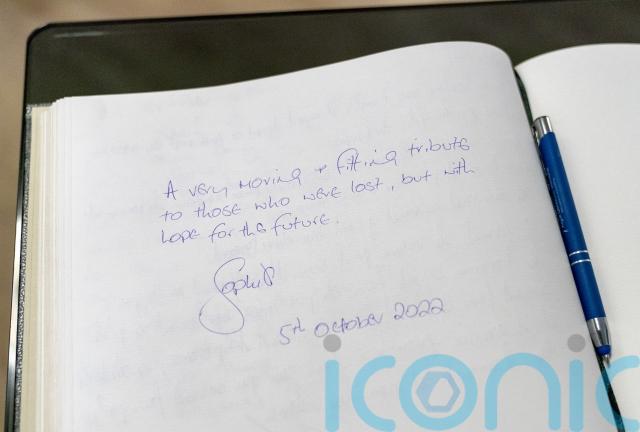 A very moving + fitting tribute
to those who were lost, but with
hope for the future.
Sophie
5th October 2022
iconic